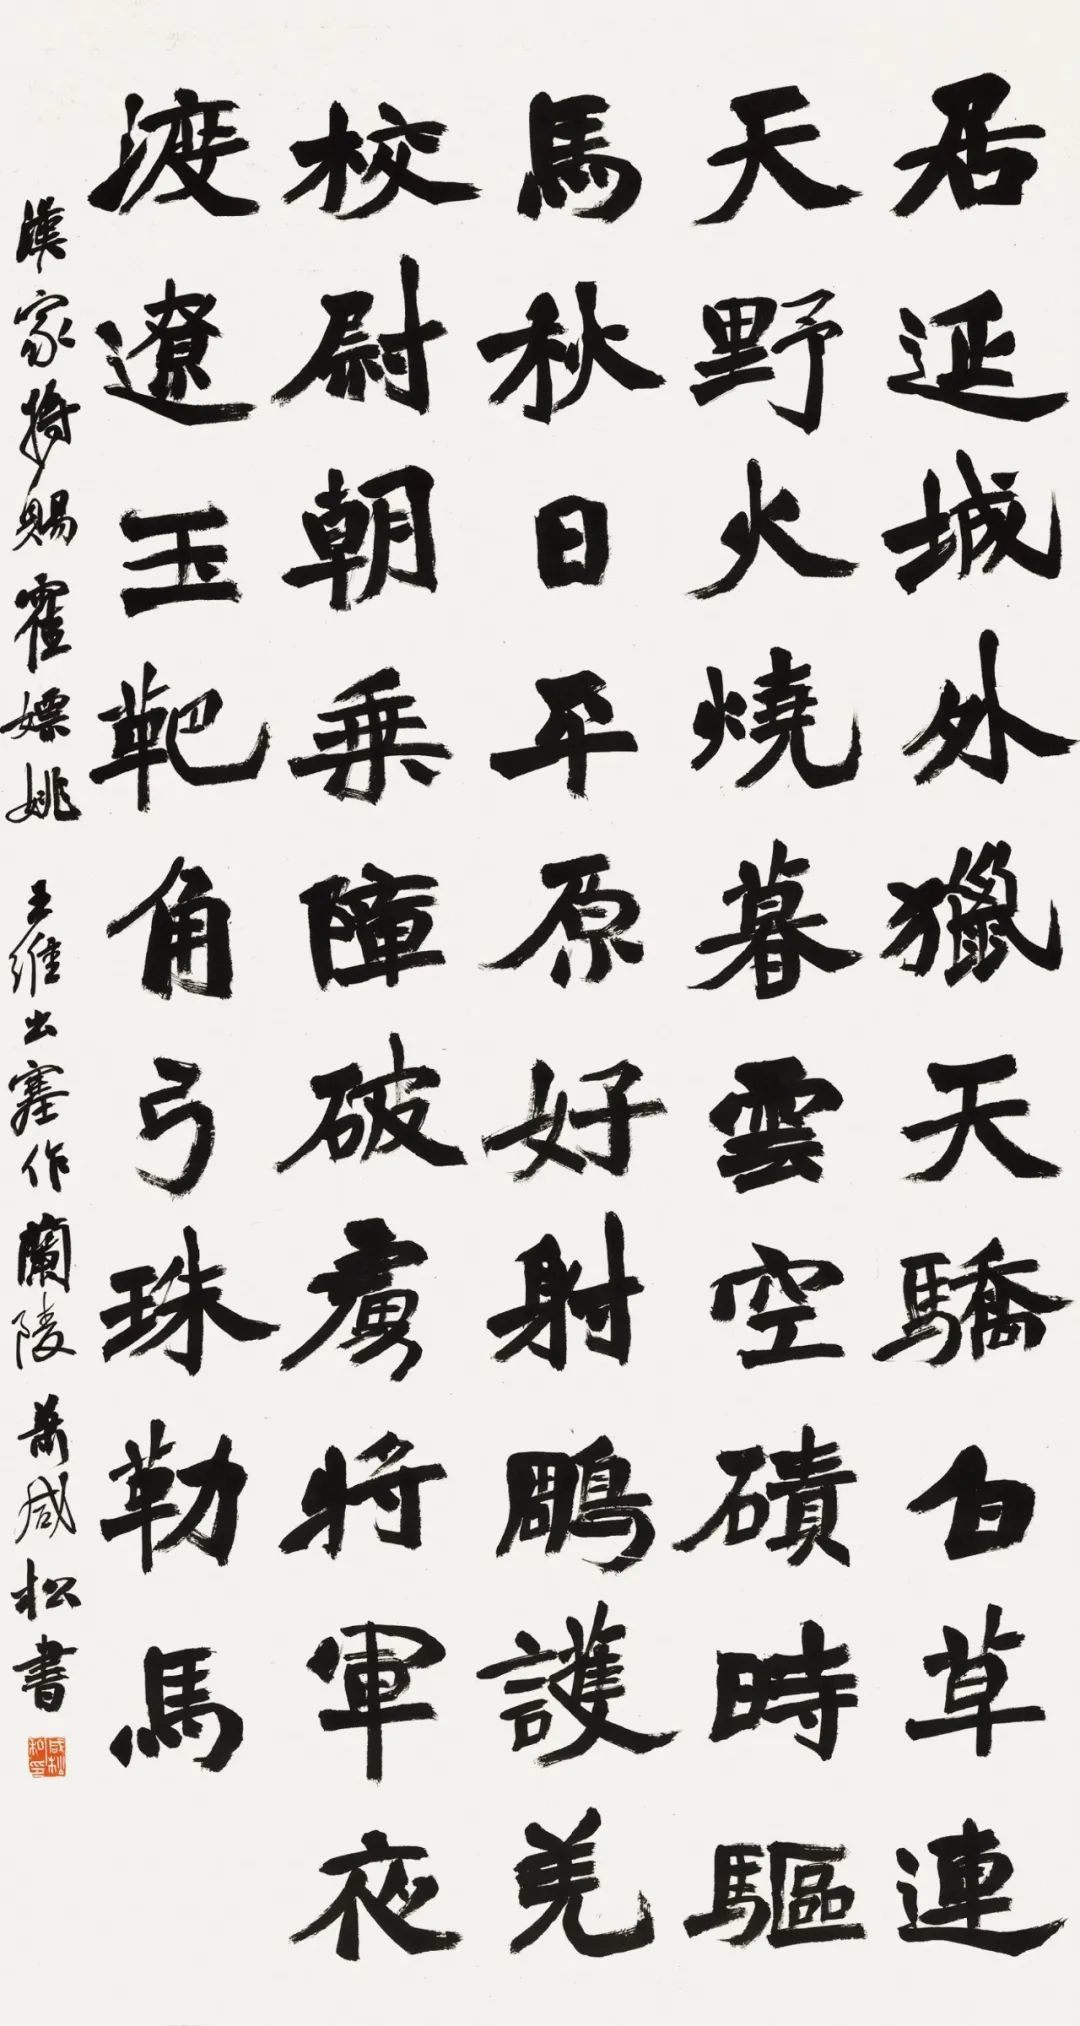 居延城外獵天驕白草連
天野火燒暮雲空磧時驅
馬秋日平原好射鵰護羌
校尉朝乗障破虜將軍夜
渡遼玉靶角弓珠勒馬
漢家將賜霍嫖姚 王維出塞作 蘭陵蕭咸松書